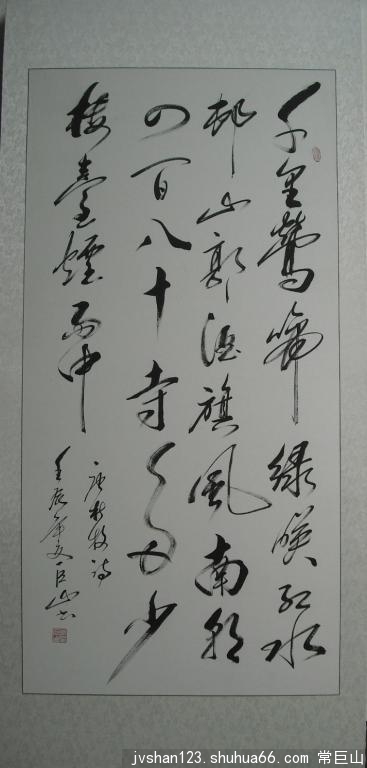 千里鶯啼綠映紅水
邨山郭酒旗風南朝
四百八十寺多少
樓臺煙雨中
唐杜牧詩
壬辰年夏巨山书
jvshan123.shuhua66.com 常巨山